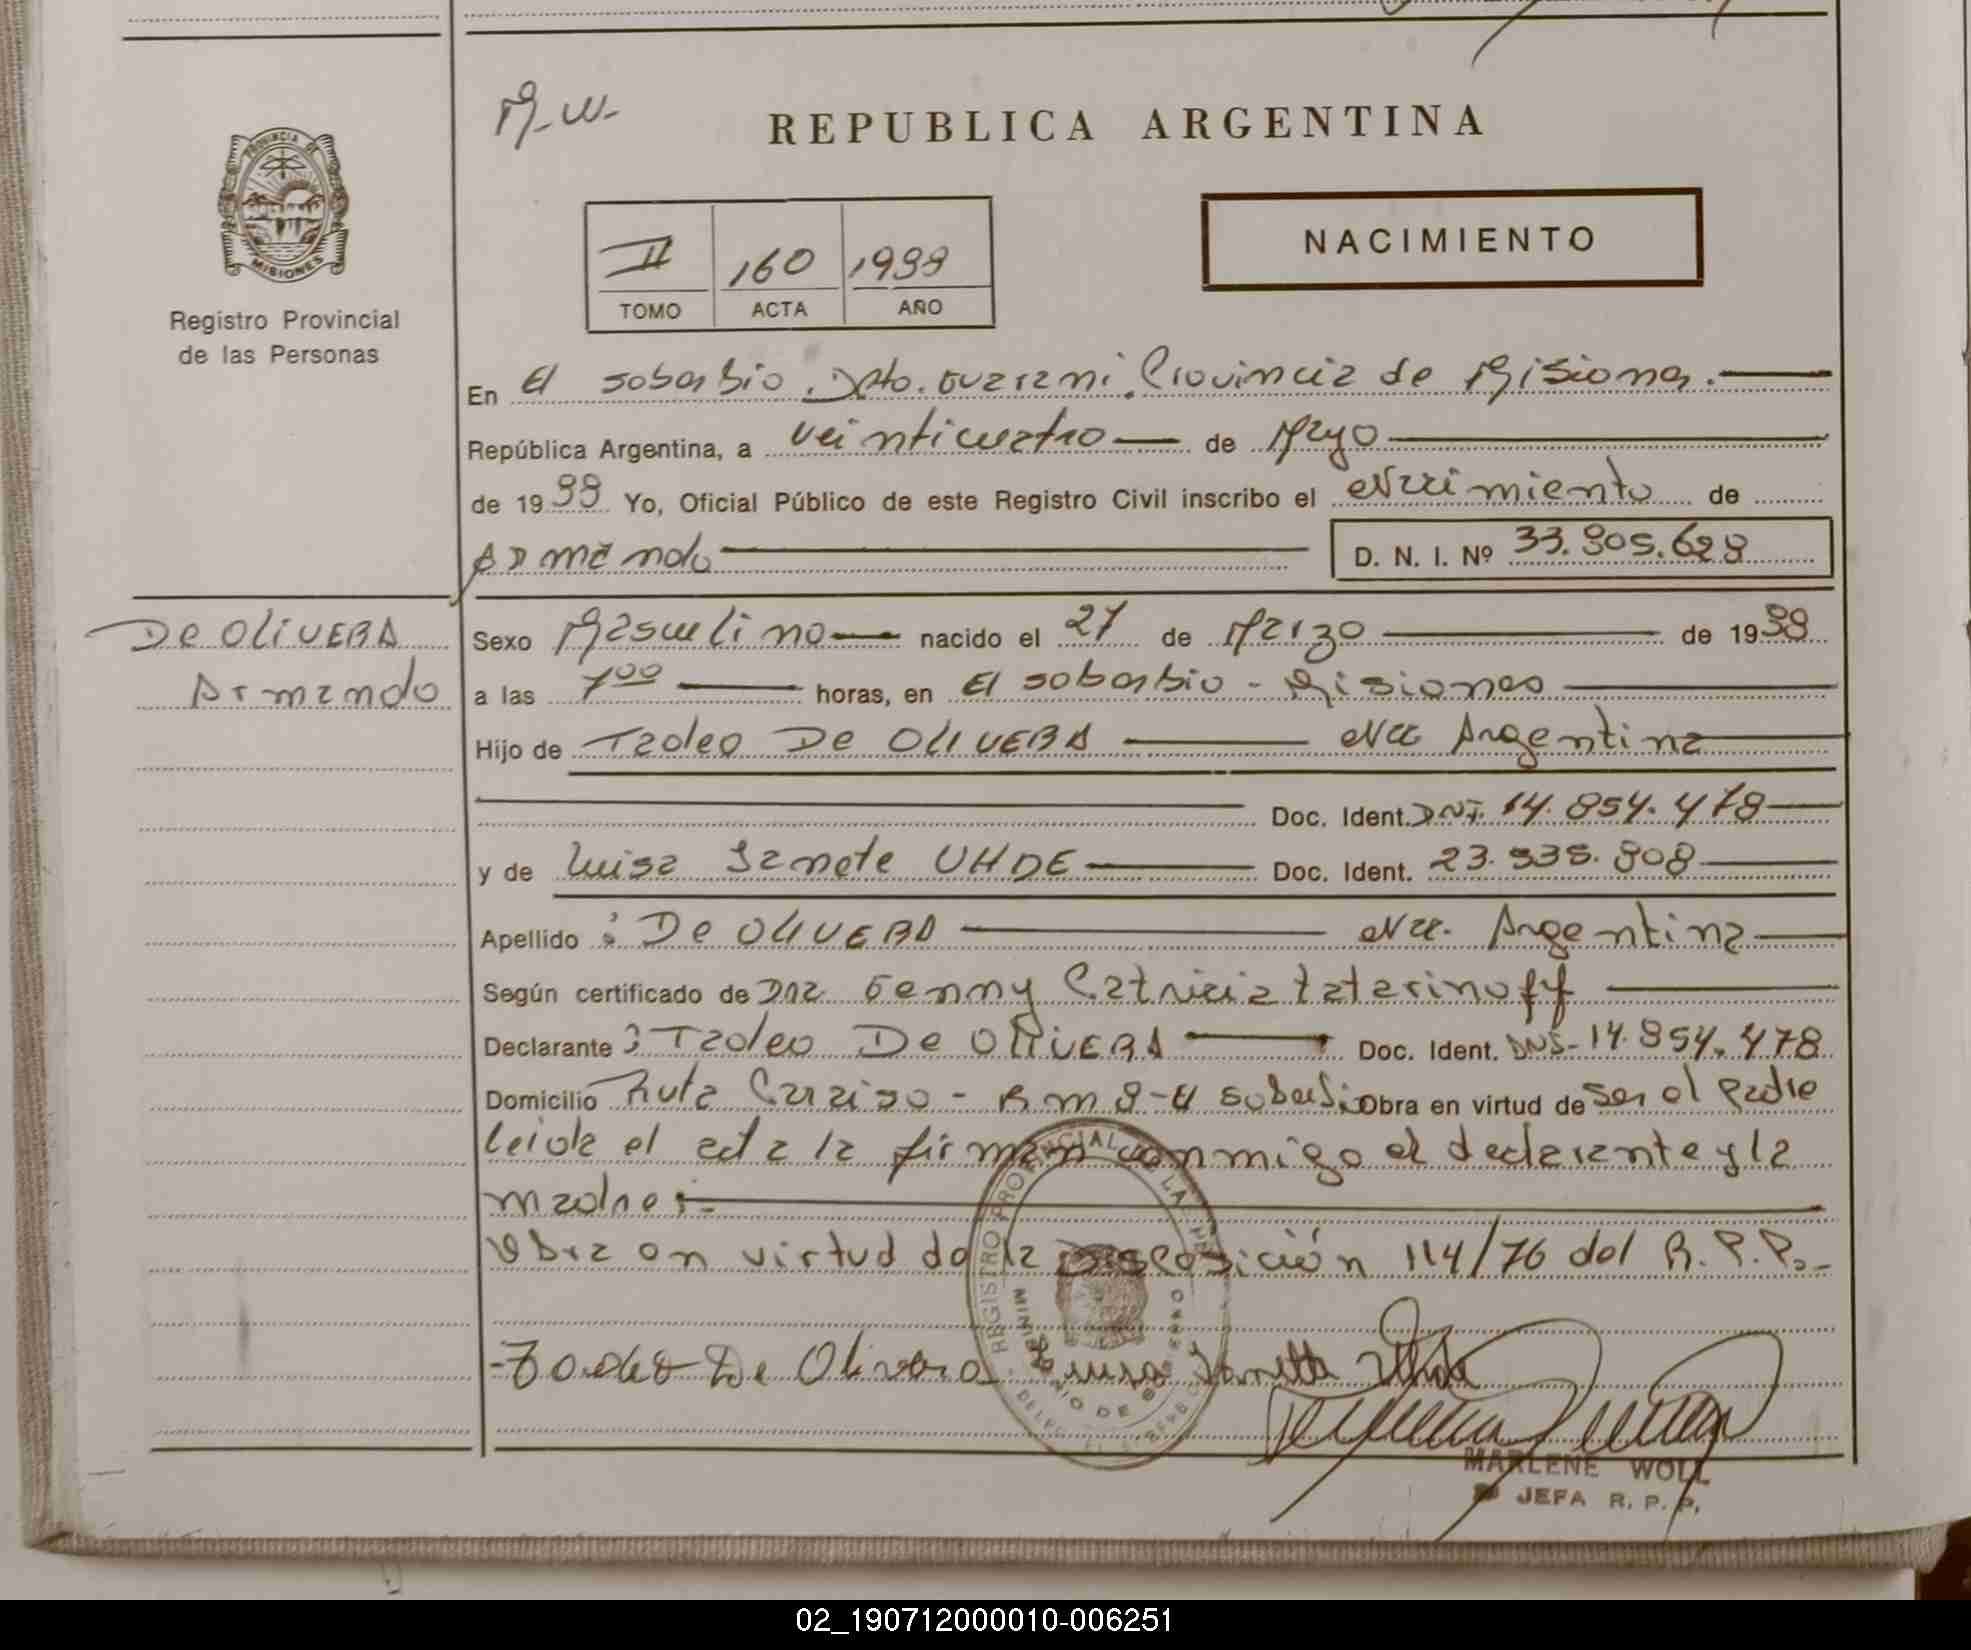 M. W.
REPUBLICA ARGENTINA
PROVINCIA DE
MISIONES
Registro Provincial
de las Personas
II 160 1999
TOMO ACTA AÑO
NACIMIENTO
En El soberbio. Dpto. Guarani. Provincia de Misiones.
República Argentina, a veinticuatro de Mayo
de 1999 Yo, Oficial Público de este Registro Civil inscribo el Nacimiento de
Armando
D. N. I. Nº 33.905.629
DE OLIVERA
Armando
Sexo Masculino nacido el 27 de Marzo de 1999
a las 7 00 horas, en El soberbio - Misiones
Hijo de Tadeo De OLIVERA Nac Argentina
Doc. Ident. DNI. 14.854.478
y de Luisa Janete UHDE Doc. Ident. 23.535.808
Apellido : De OLIVERA Nac. Argentina
Según certificado de Dra. Genny Patricia tatarinoff
Declarante : Tadeo De OLIVERA Doc. Ident. DNI- 14.854.478
Domicilio Ruta Paraiso - Km 9 - El soberbio Obra en virtud de ser el padre
leida el acta la firman conmigo el declarante y la
madre:-
Obra en virtud de la Disposición 114/76 del R.P.P.-
-Tadeo De Olivera Luisa Janette Uhde
MARLENE WOLL
JEFA R. P. P.
02_190712000010-006251